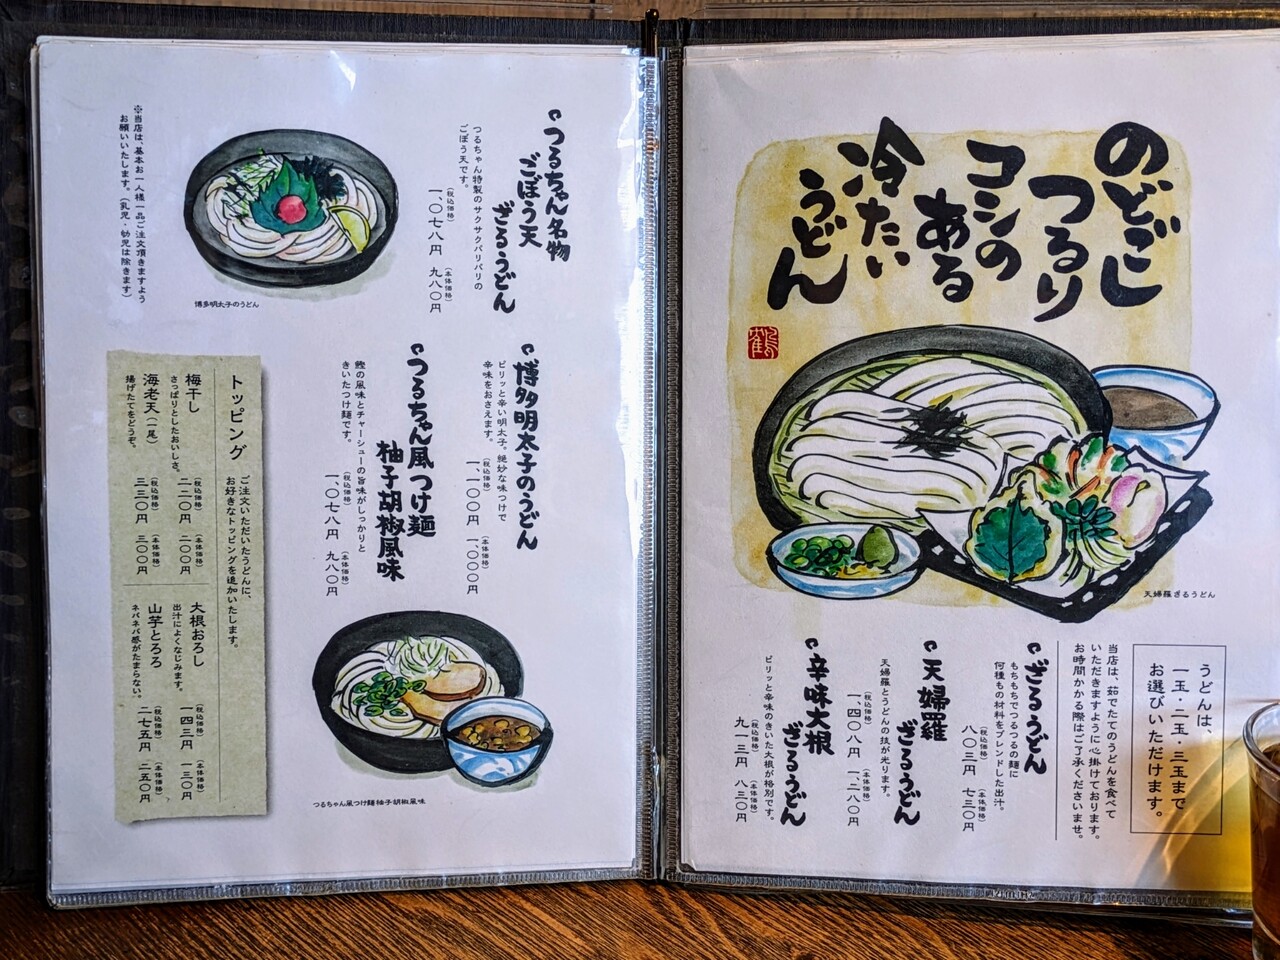 のどごし
つるり
コシの
ある
冷たい
うどん
鶴
天婦羅ざるうどん
うどんは、
一玉・二玉・三玉まで
お選びいただけます。
当店は、茹でたてのうどんを食べて
いただきますように心掛けております。
お時間かかる際はご了承くださいませ。
ざるうどん
もちもちでつるつるの麺に
何種もの材料をブレンドした出汁。
(税込価格)
八〇三円
(本体価格)
七三〇円
天婦羅
ざるうどん
天婦羅とうどんの技が光ります。
(税込価格)
一、四〇八円
(本体価格)
一、二八〇円
辛味大根
ざるうどん
ピリッと辛味のきいた大根が格別です。
(税込価格)
九一三円
(本体価格)
八三〇円
つるちゃん名物
ごぼう天
ざるうどん
つるちゃん特製のサクサクバリバリの
ごぼう天です。
(税込価格)
一、〇七八円
(本体価格)
九八〇円
博多明太子のうどん
※当店は、基本お一人様一品ご注文頂きますよう
お願いいたします。(乳児・幼児は除きます)
博多明太子のうどん
ピリッと辛い明太子。絶妙な味つけで
辛味をおさえます。
(税込価格)
一、一〇〇円
(本体価格)
一、〇〇〇円
つるちゃん風つけ麺
柚子胡椒風味
鰹の風味とチャーシューの旨味がしっかりと
きいたつけ麺です。
(税込価格)
一、〇七八円
(本体価格)
九八〇円
つるちゃん風つけ麺柚子胡椒風味
トッピング
ご注文いただいたうどんに、
お好きなトッピングを追加いたします。
梅干し
さっぱりとしたおいしさ。
(税込価格)
二二〇円
(本体価格)
二〇〇円
海老天(一尾)
揚げたてをどうぞ。
(税込価格)
三三〇円
(本体価格)
三〇〇円
大根おろし
出汁によくなじみます。
(税込価格)
一四三円
(本体価格)
一三〇円
山芋とろろ
ネバネバ感がたまらない。
(税込価格)
二七五円
(本体価格)
二五〇円